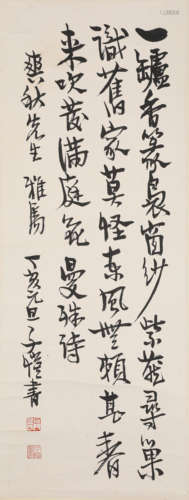 一罏香篆裊窗紗紫燕尋巢
識舊家莫怪東風無賴甚春
来吹發滿庭花 曼殊詩
爽秋先生 雅屬 丁亥元旦子愷書